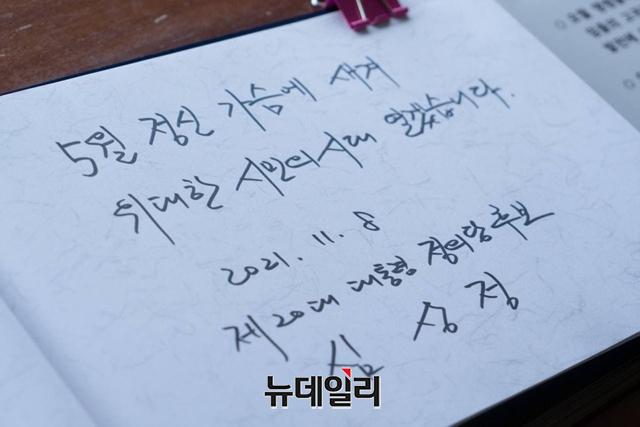 5월 정신 가슴에 새겨
위대한 시민의 시대 열겠습니다.
2021. 11. 8
제20대 대통령 정의당 후보
심상정
뉴데일리